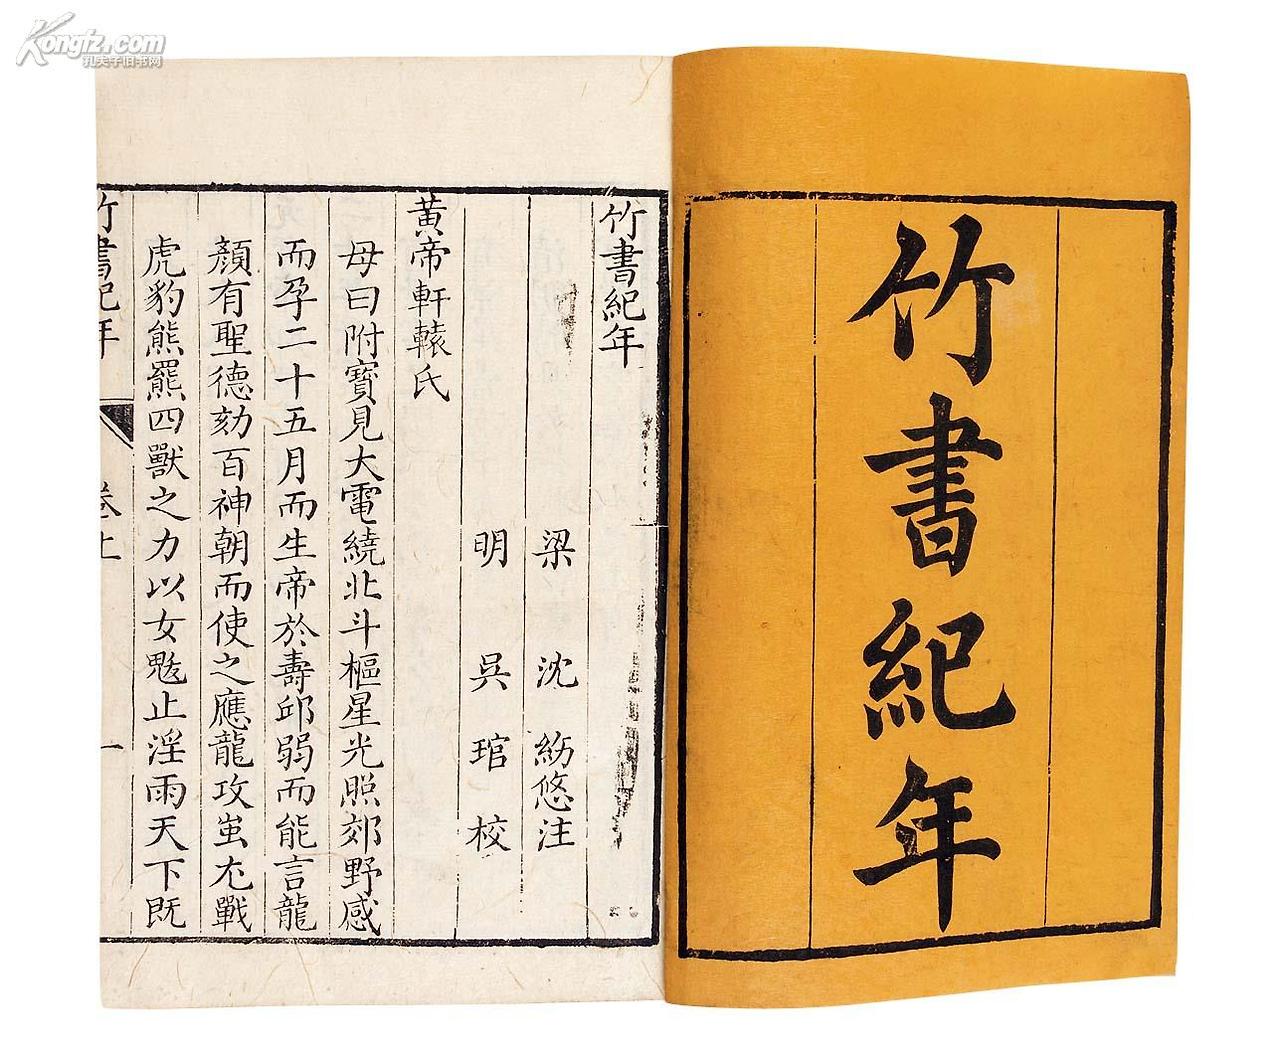 Kongfz.com
孔夫子旧书网
竹書紀年
竹書紀年
梁 沈 約 悠 注
明 吳 琯 校
黃帝軒轅氏
母曰附寶見大電繞北斗樞星光照郊野感
而孕二十五月而生帝於壽邱弱而能言龍
顏有聖德劾百神朝而使之應龍攻蚩尤戰
虎豹熊羆四獸之力以女魃止淫雨天下既
竹書紀年 卷上 一